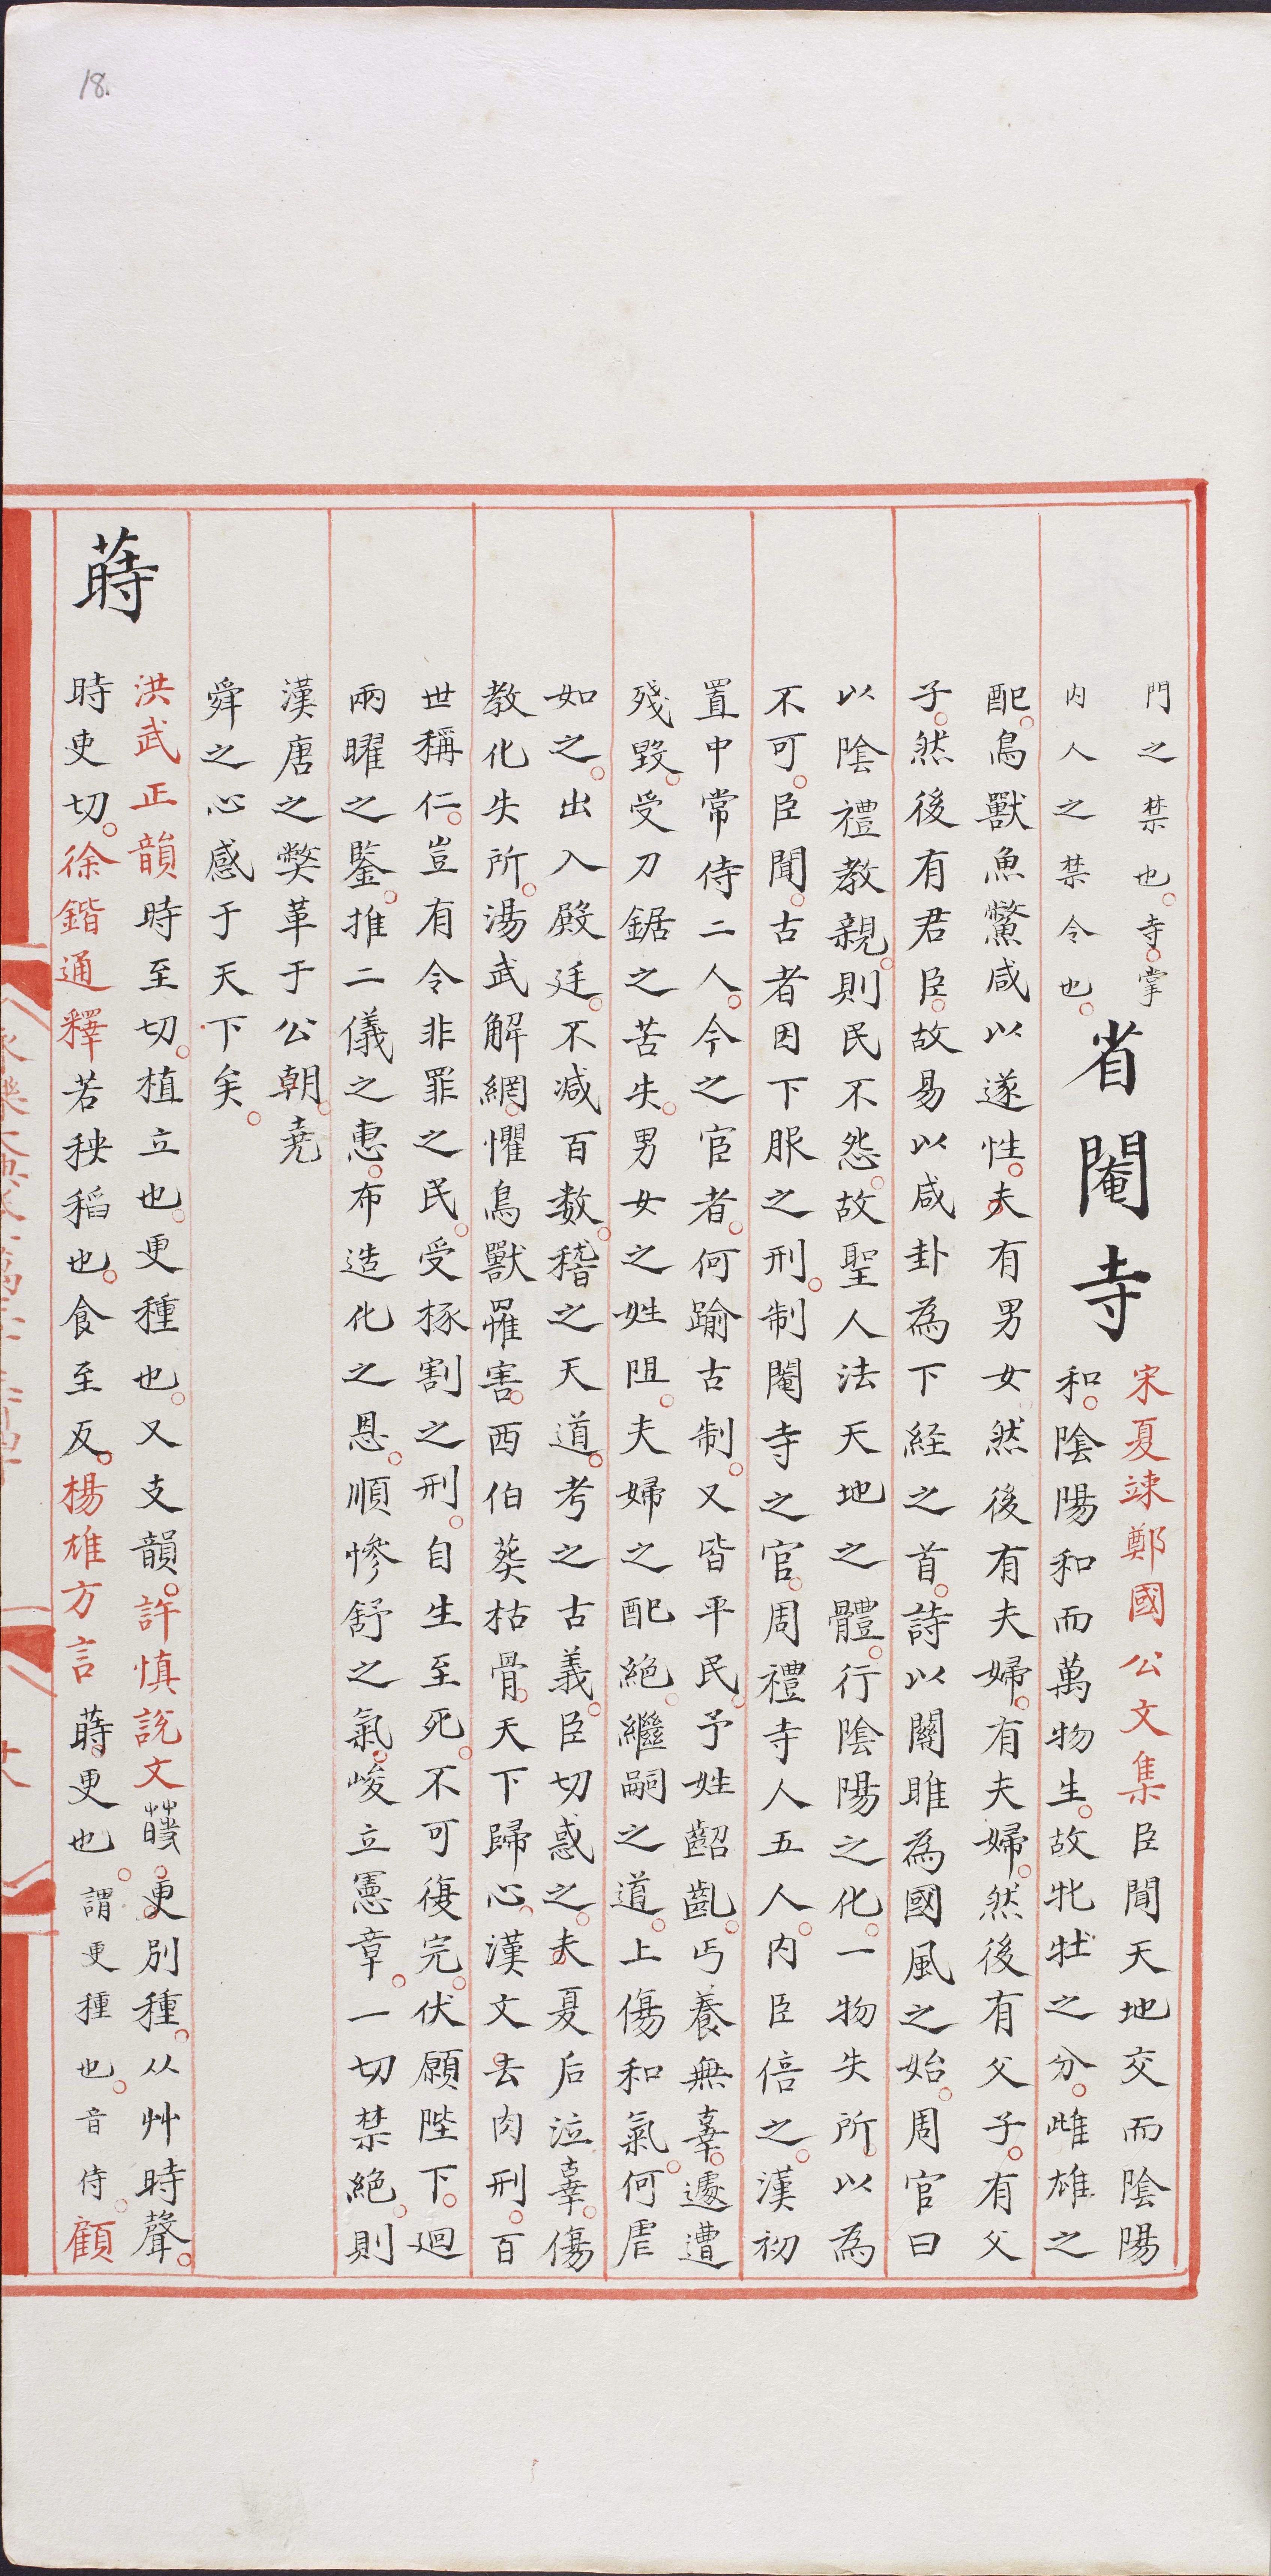 18.
門之禁也。寺。掌
内人之禁令也。
省閹寺
宋夏竦鄭國公文集臣聞天地交而陰陽
和。陰陽和而萬物生。故牝牡之分。雌雄之
配。鳥獸魚鱉咸以遂性。夫有男女然後有夫婦。有夫婦。然後有父子。有父
子。然後有君臣。故易以咸卦為下経之首。詩以關雎為國風之始。周官曰
以陰禮教親。則民不怨。故聖人法天地之體。行陰陽之化。一物失所。以為
不可。臣聞。古者因下服之刑。制閹寺之官。周禮寺人五人。内臣倍之。漢初
置中常侍二人。今之宦者。何踰古制。又皆平民。予姓齠齓。丐養無辜。遽遭
殘毀。受刀鋸之苦失。男女之姓阻。夫婦之配絶。繼嗣之道。上傷和氣。何虐
如之。出入殿廷。不減百数。稽之天道。考之古義。臣切惑之。夫夏后泣辜。傷
教化失所。湯武解網。懼鳥獸罹害。西伯葬枯骨。天下歸心。漢文去肉刑。百
世稱仁。豈有令非罪之民。受椓割之刑。自生至死。不可復完。伏願陛下。迴
兩曜之鑒。推二儀之惠。布造化之恩。順慘舒之氣。峻立憲章。一切禁絶。則
漢唐之獘革于公朝。堯
舜之心感于天下矣。
蒔
洪武正韻時至切。植立也。更種也。又支韻。許慎說文蒔。更別種。从艸時聲。
時吏切。徐鍇通釋若秧稻也。食至反。楊雄方言蒔。更也。謂更種也。音侍。顧